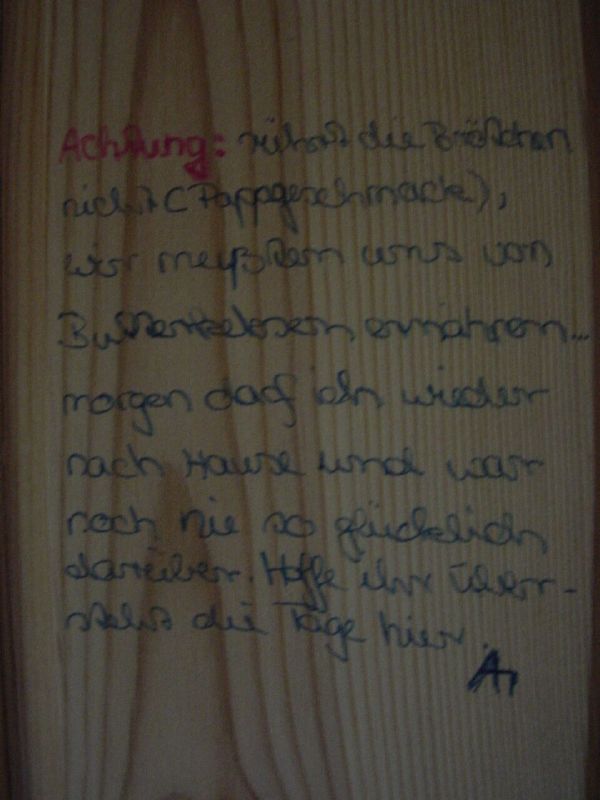 Achtung: rührt die Brötchen
nicht (Pappgeschmack),
wir mußten uns von
Butterkeksen ernähren...
morgen darf ich wieder
nach Hause und war
noch nie so glücklich
darüber. Hoffe ihr über-
steht die Tage hier.
A.